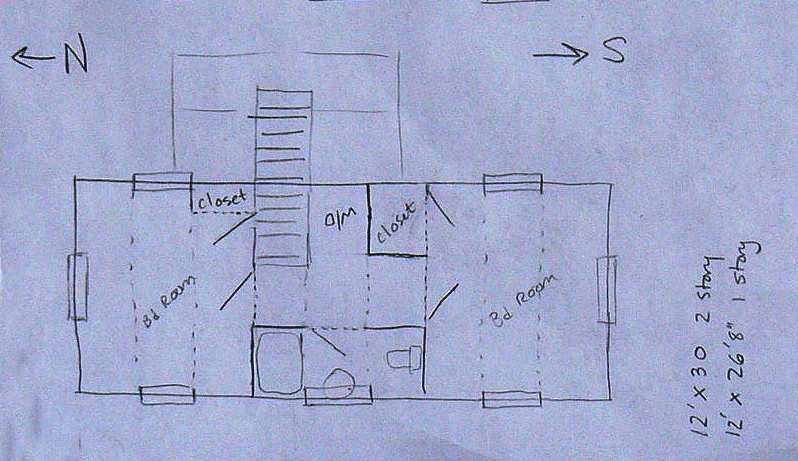 N
S
closet
D/M
closet
Bd Room
Bd Room
12' x 30 2 story
12' x 26'8" 1 story